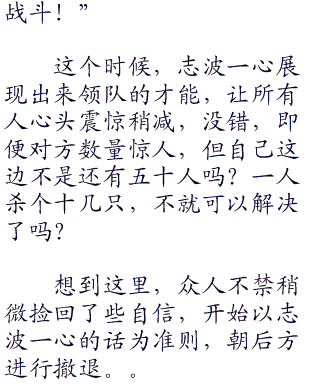 战斗！”
这个时候，志波一心展
现出来领队的才能，让所有
人心头震惊稍减，没错，即
便对方数量惊人，但自己这
边不是还有五十人吗？一人
杀个十几只，不就可以解决
了吗？
想到这里，众人不禁稍
微捡回了些自信，开始以志
波一心的话为准则，朝后方
进行撤退。。